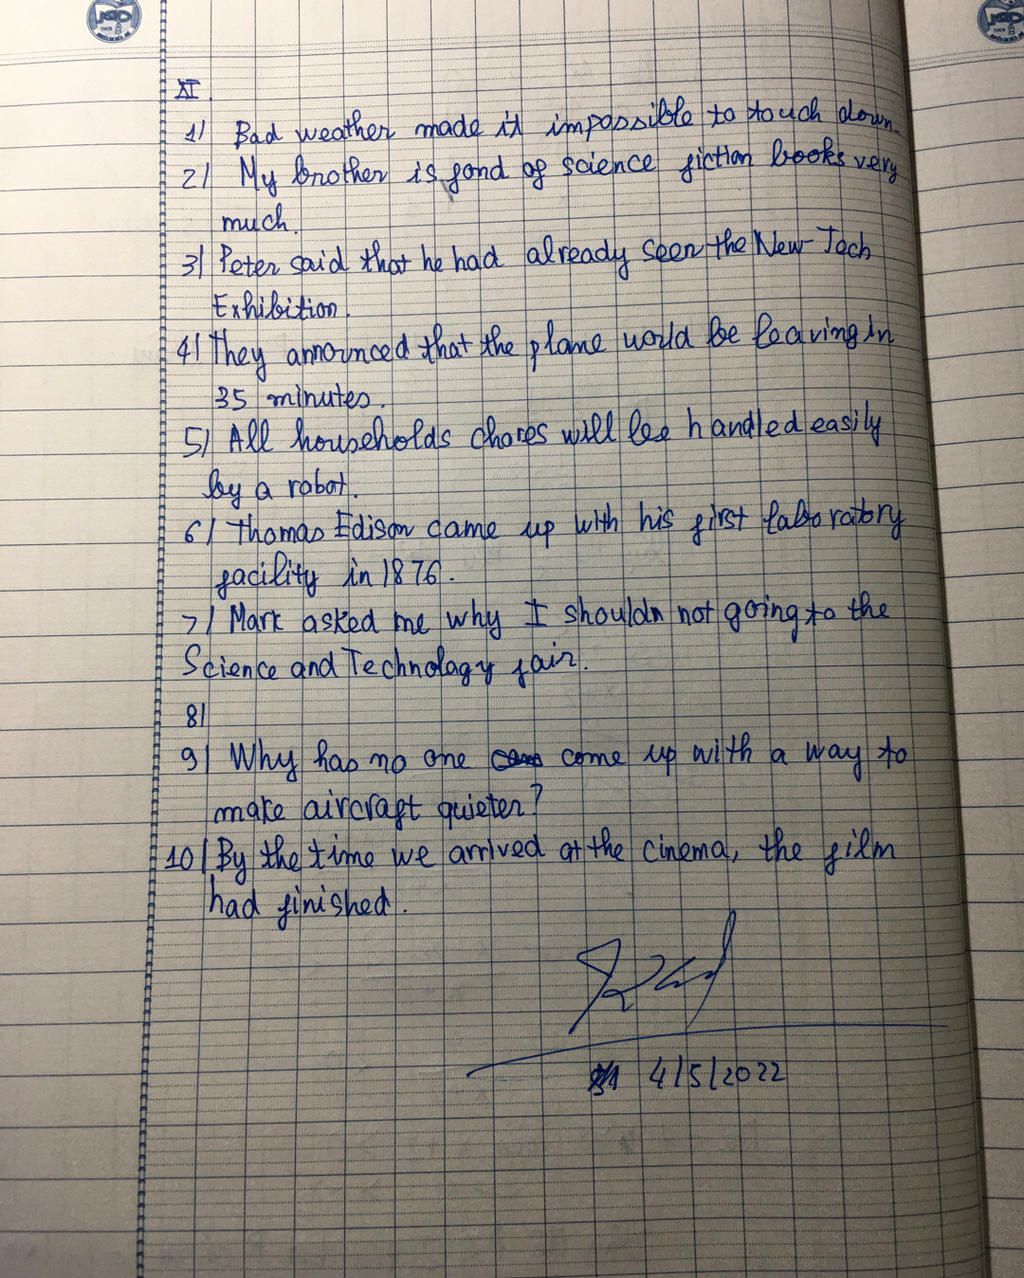 XI.
1) Bad weather made it impossible to touch down.
2) My brother is fond of science fiction books very
much.
3) Peter said that he had already seen the New Tech
Exhibition.
4) They announced that the plane world be leaving in
35 minutes.
5) All households chores will be handled easily
by a robot.
6) Thomas Edison came up with his first laboratory
facility in 1876.
7) Mark asked me why I shouldn not going to the
Science and Technology fair.
8)
9) Why has no one come up with a way to
make aircraft quieter?
10) By the time we arrived at the cinema, the film
had finished.
4/5/2022